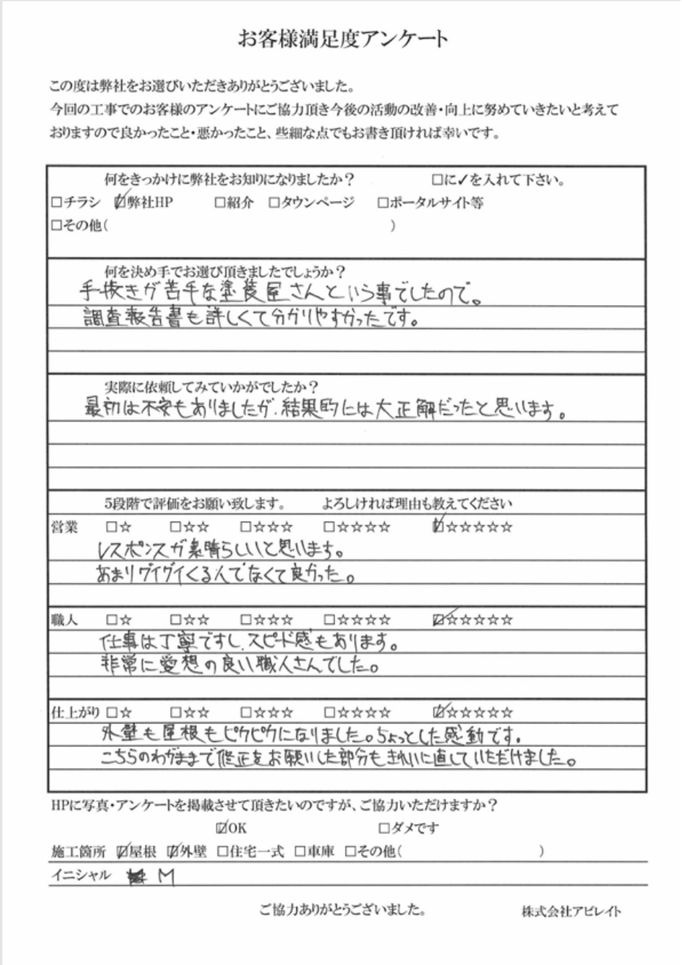 お客様満足度アンケート
この度は弊社をお選びいただきありがとうございました。
今回の工事でのお客様のアンケートにご協力頂き今後の活動の改善・向上に努めていきたいと考えて
おりますので良かったこと・悪かったこと、些細な点でもお書き頂ければ幸いです。
何をきっかけに弊社をお知りになりましたか? □に✓を入れて下さい。
□チラシ ☑弊社HP □紹介 □タウンページ □ポータルサイト等
□その他( )
何を決め手でお選び頂きましたでしょうか?
手抜きが苦手な塗装屋さんという事でしたので。
調査報告書も詳しくて分かりやすかったです。
実際に依頼してみていかがでしたか?
最初は不安もありましたが、結果的には大正解だったと思います。
5段階で評価をお願い致します。 よろしければ理由も教えてください
営業 □☆ □☆☆ □☆☆☆ □☆☆☆☆ ☑☆☆☆☆☆
レスポンスが素晴らしいと思います。
あまりグイグイくる人でなくて良かった。
職人 □☆ □☆☆ □☆☆☆ □☆☆☆☆ ☑☆☆☆☆☆
仕事は丁寧ですし、スピード感もあります。
非常に愛想の良い職人さんでした。
仕上がり □☆ □☆☆ □☆☆☆ □☆☆☆☆ ☑☆☆☆☆☆
外壁も屋根もピカピカになりました。ちょっとした感動です。
こちらのわがままで修正をお願いした部分もきれいに直していただけました。
HPに写真・アンケートを掲載させて頂きたいのですが、ご協力いただけますか?
☑OK □ダメです
施工箇所 ☑屋根 ☑外壁 □住宅一式 □車庫 □その他( )
イニシャル M
ご協力ありがとうございました。 株式会社アビレイト